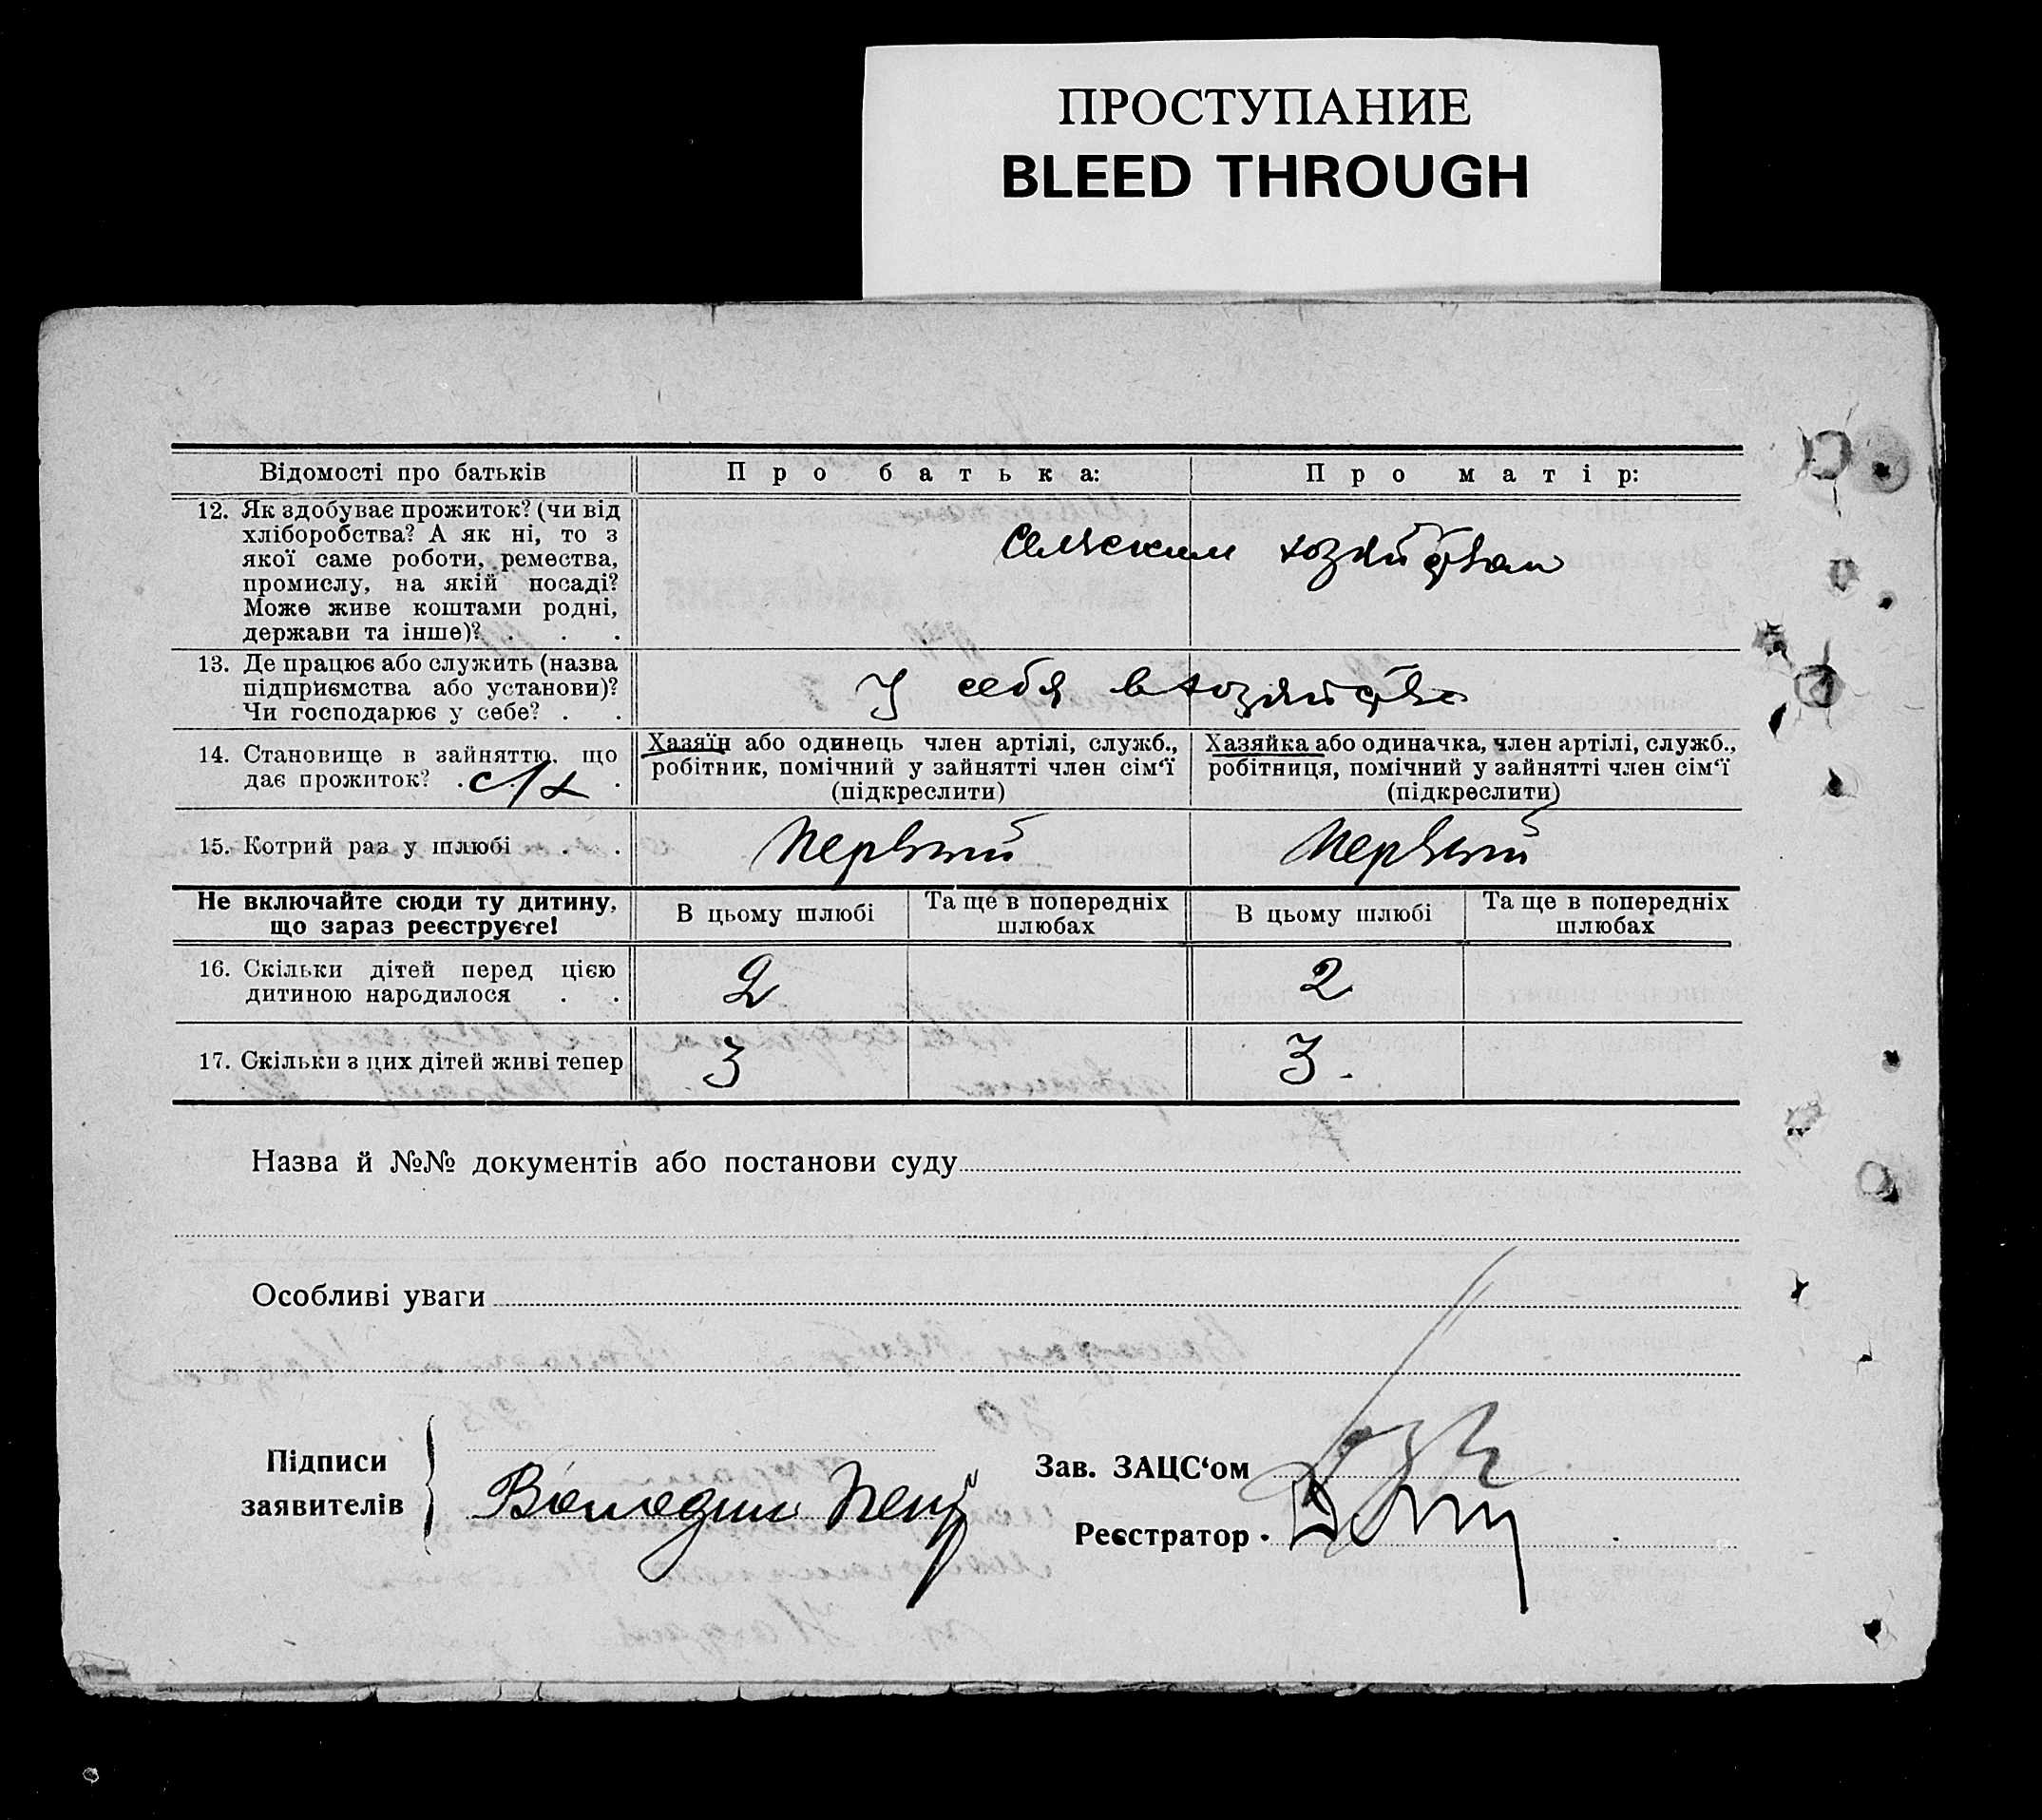 ПРОСТУПАНИЕ
BLEED THROUGH
Відомості про батьків
Про батька:
Про матір:
12. Як здобуває прожиток? (чи від
хліборобства? А як ні, то з
якої саме роботи, ремества,
промислу, на якій посаді?
Може живе коштами родні,
держави та інше)? . . .
Сельским хозяйством
13. Де працює або служить (назва
підприємства або установи)?
Чи господарює у себе? . .
У себя в хозяйстве
14. Становище в зайняттю, що
дає прожиток? . . .
с/х
Хазяїн або одинець член артілі, служб.,
робітник, помічний у зайнятті член сім'ї
(підкреслити)
Хазяйка або одиначка, член артілі, служб.,
робітниця, помічний у зайнятті член сім'ї
(підкреслити)
15. Котрий раз у шлюбі . .
Первый
Первый
Не включайте сюди ту дитину,
що зараз реєструєте!
В цьому шлюбі
Та ще в попередніх
шлюбах
В цьому шлюбі
Та ще в попередніх
шлюбах
16. Скільки дітей перед цією
дитиною народилося . .
2
2
17. Скільки з цих дітей живі тепер
3
3.
Назва й №№ документів або постанови суду
Особливі уваги
Підписи
заявителів
Зав. ЗАЦС'ом
Реєстратор